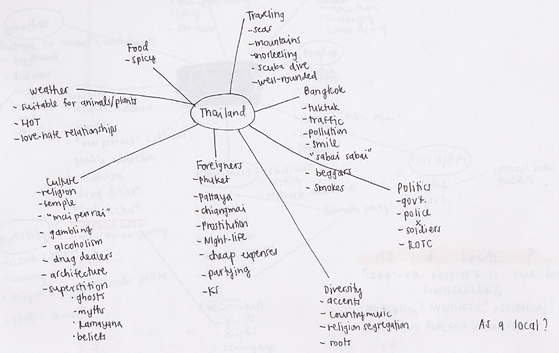 Traveling
- seas
- mountains
- snorkeling
- scuba dive
- well-rounded
Food
- spicy
weather
- suitable for animals/plants
- HOT
- love-hate relationships
Thailand
Bangkok
- tuktuk
- traffic
- pollution
- smile
"sabai sabai"
- beggars
- smokes
Culture
- religion
- temple
- "mai pen rai"
- gambling
- alcoholism
- drug dealers
- architecture
- superstition
· ghosts
· myths
· Ramayana
· beliefs
Foreigners
- Phuket
- Pattaya
- chiangmai
- Prostitution
- Night-life
- cheap expenses
- partying
Politics
- gov't.
- police
x
- soldiers
- ROTC
Diversity
- accents
- country music
- religion segregation
- roots
As a local?